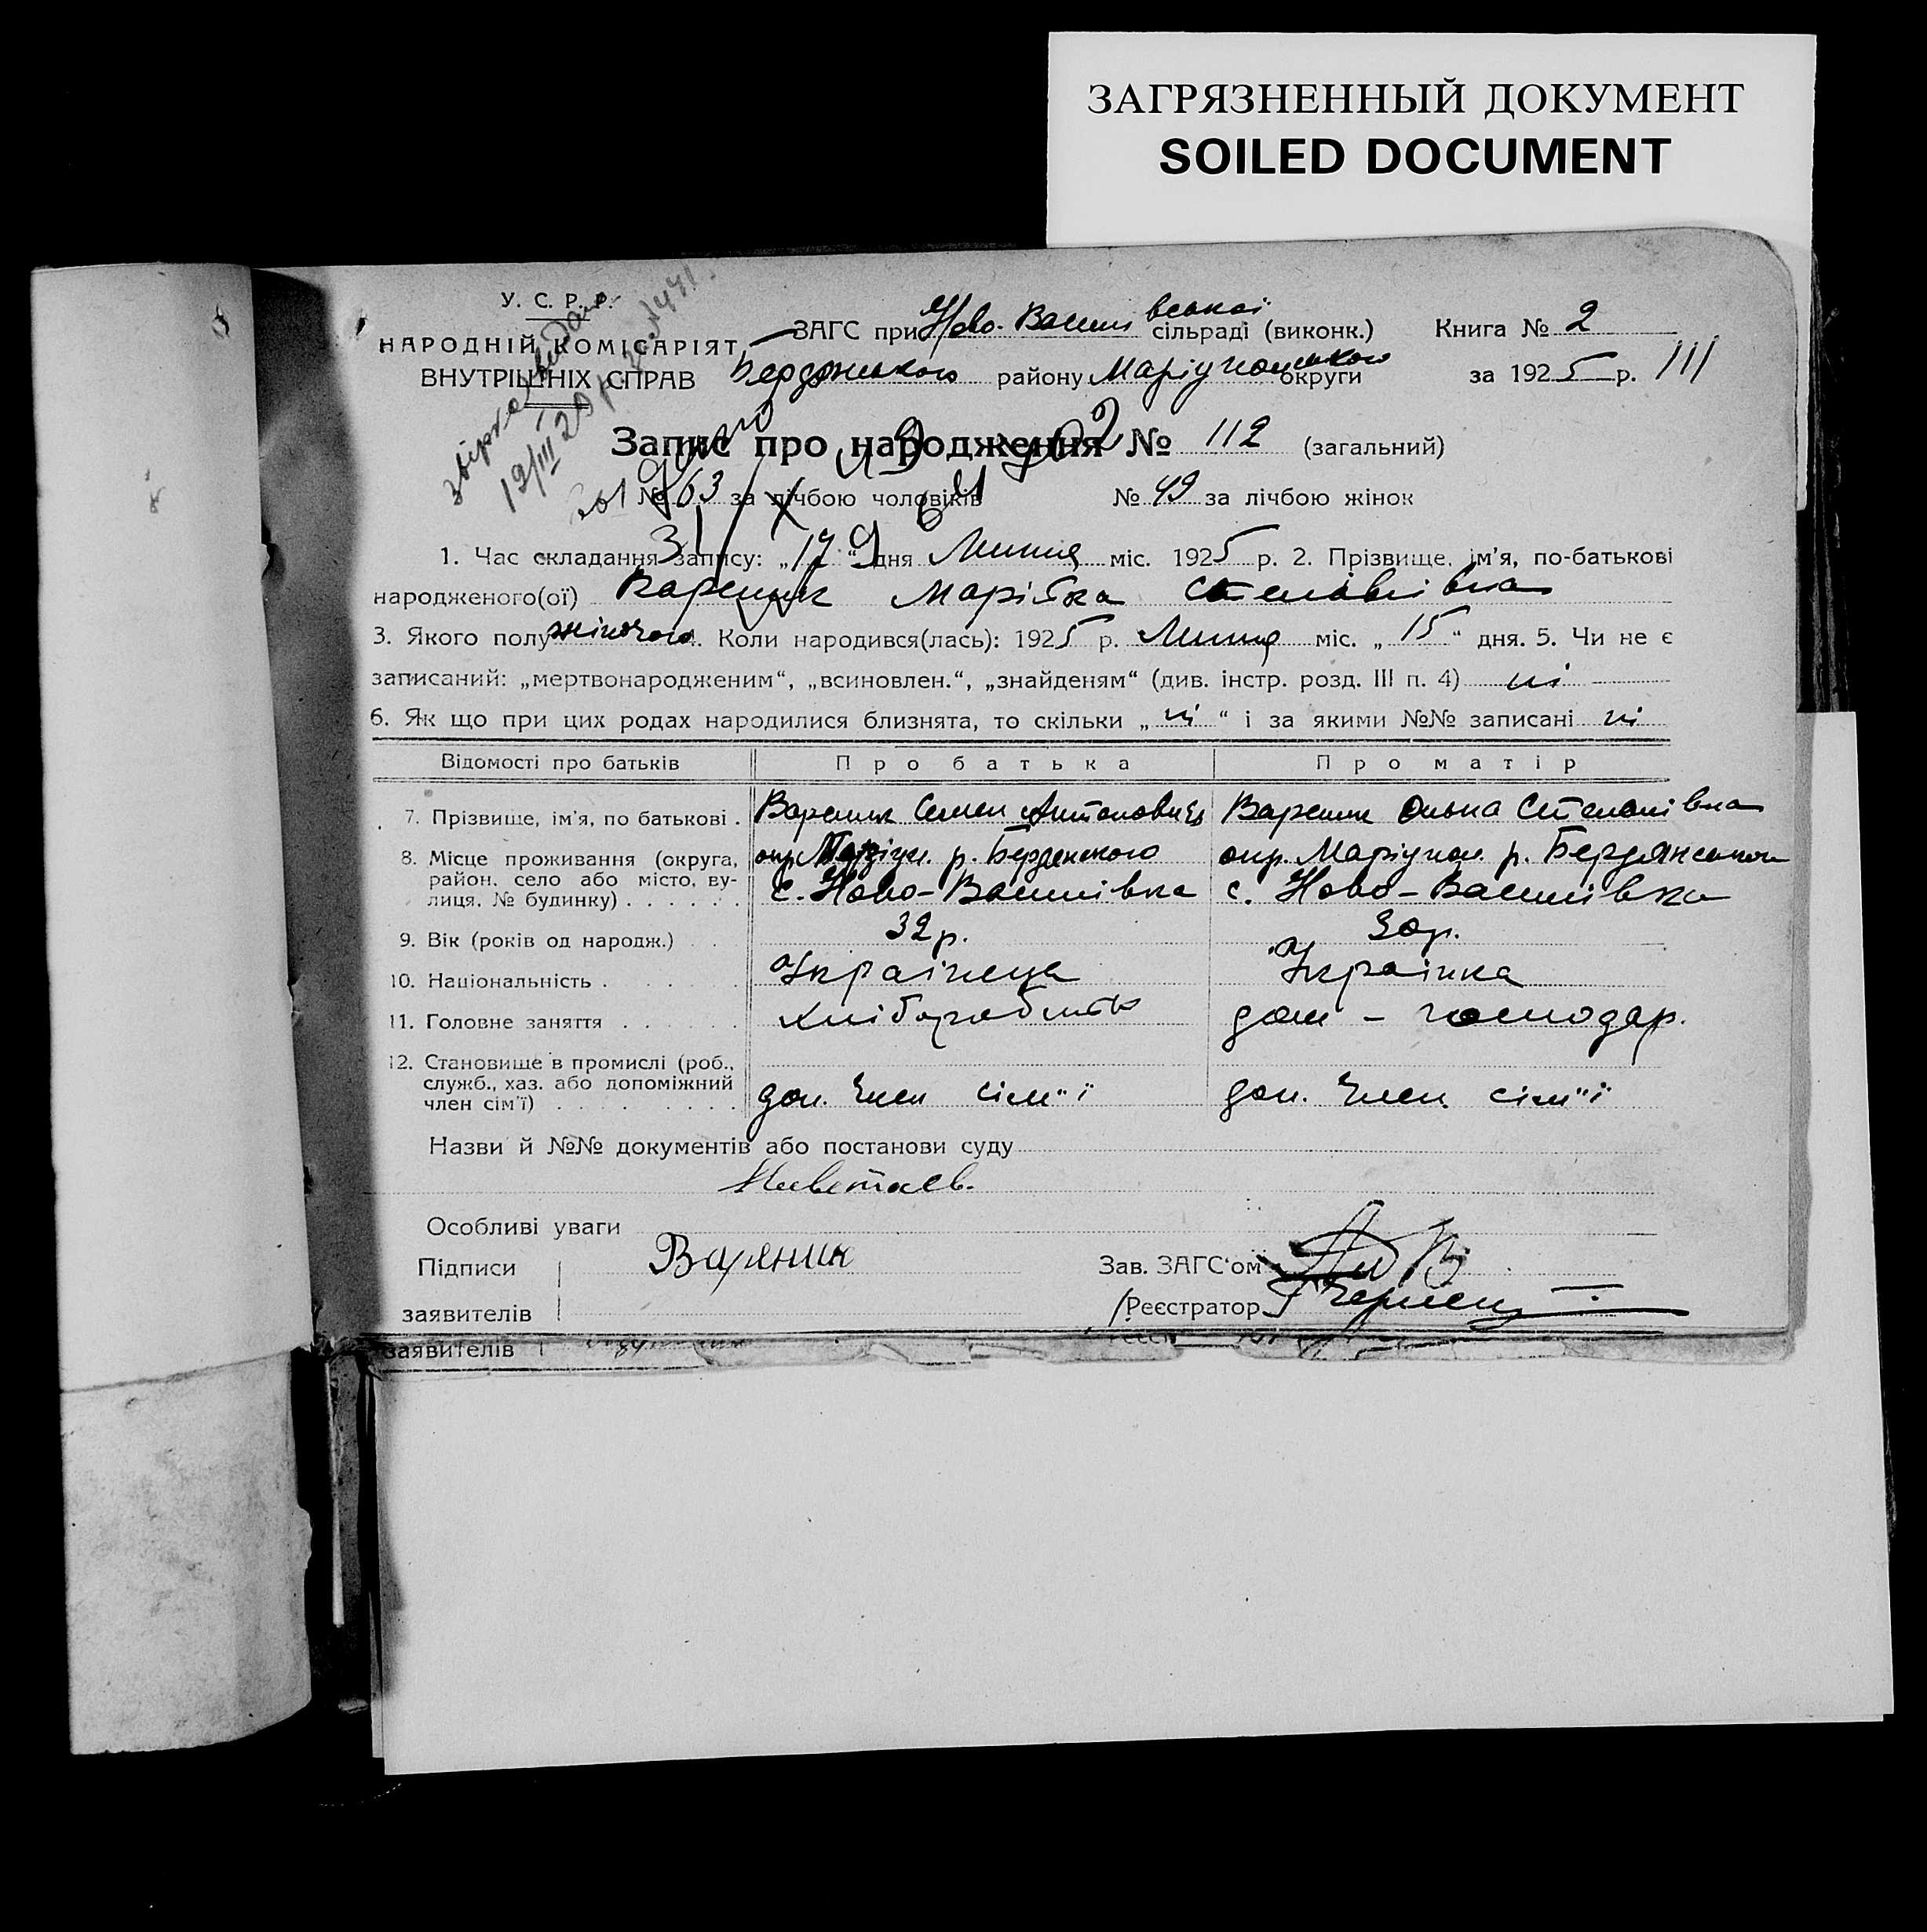 ЗАГРЯЗНЕННЫЙ ДОКУМЕНТ
SOILED DOCUMENT
У. С. Р. Р.
НАРОДНІЙ КОМІСАРІЯТ
ВНУТРІШНІХ СПРАВ
ЗАГС при Ново-Василівської сільраді (виконк.) Книга № 2
Бердянського району Маріупольського округи за 1925 р. 111
Запис про народження № 112 (загальний)
№ 63 за лічбою чоловіків № 49 за лічбою жінок
1. Час складання запису: „17“ дня Липня міс. 1925 р. 2. Прізвище, ім'я, по-батькові
народженого(ої) Вареник Марійка
3. Якого полу жіночого. Коли народився(лась): 1925 р. Липня міс. „15“ дня. 5. Чи не є
записаний: „мертвонародженим“, „всиновлен.“, „знайденям“ (див. інстр. розд. III п. 4) ні
6. Як що при цих родах народилися близнята, то скільки „ні“ і за якими №№ записані ні
Відомості про батьків Про батька Про матір
7. Прізвище, ім'я, по батькові . Вареник Семен Антонович Вареник Олька Степанівна
8. Місце проживання (округа, район, село або місто, вулиця, № будинку) . . . . . .
р. Бердянського окр. Маріупол. р. Бердянського
с. Ново-Василівка с. Ново-Василівка
9. Вік (років од народж.) . . 32 р. 30 р.
10. Національність . . . . . . Українець Українка
11. Головне заняття . . . . . . Хліборобство дом - господар.
12. Становище в промислі (роб., служб., хаз. або допоміжний член сім'ї) . . . . . . . .
доп. член сім"ї доп. член сім"ї
Назви й №№ документів або постанови суду
Особливі уваги
Підписи Вареник Зав. ЗАГС'ом
заявителів Реєстратор
заявителів